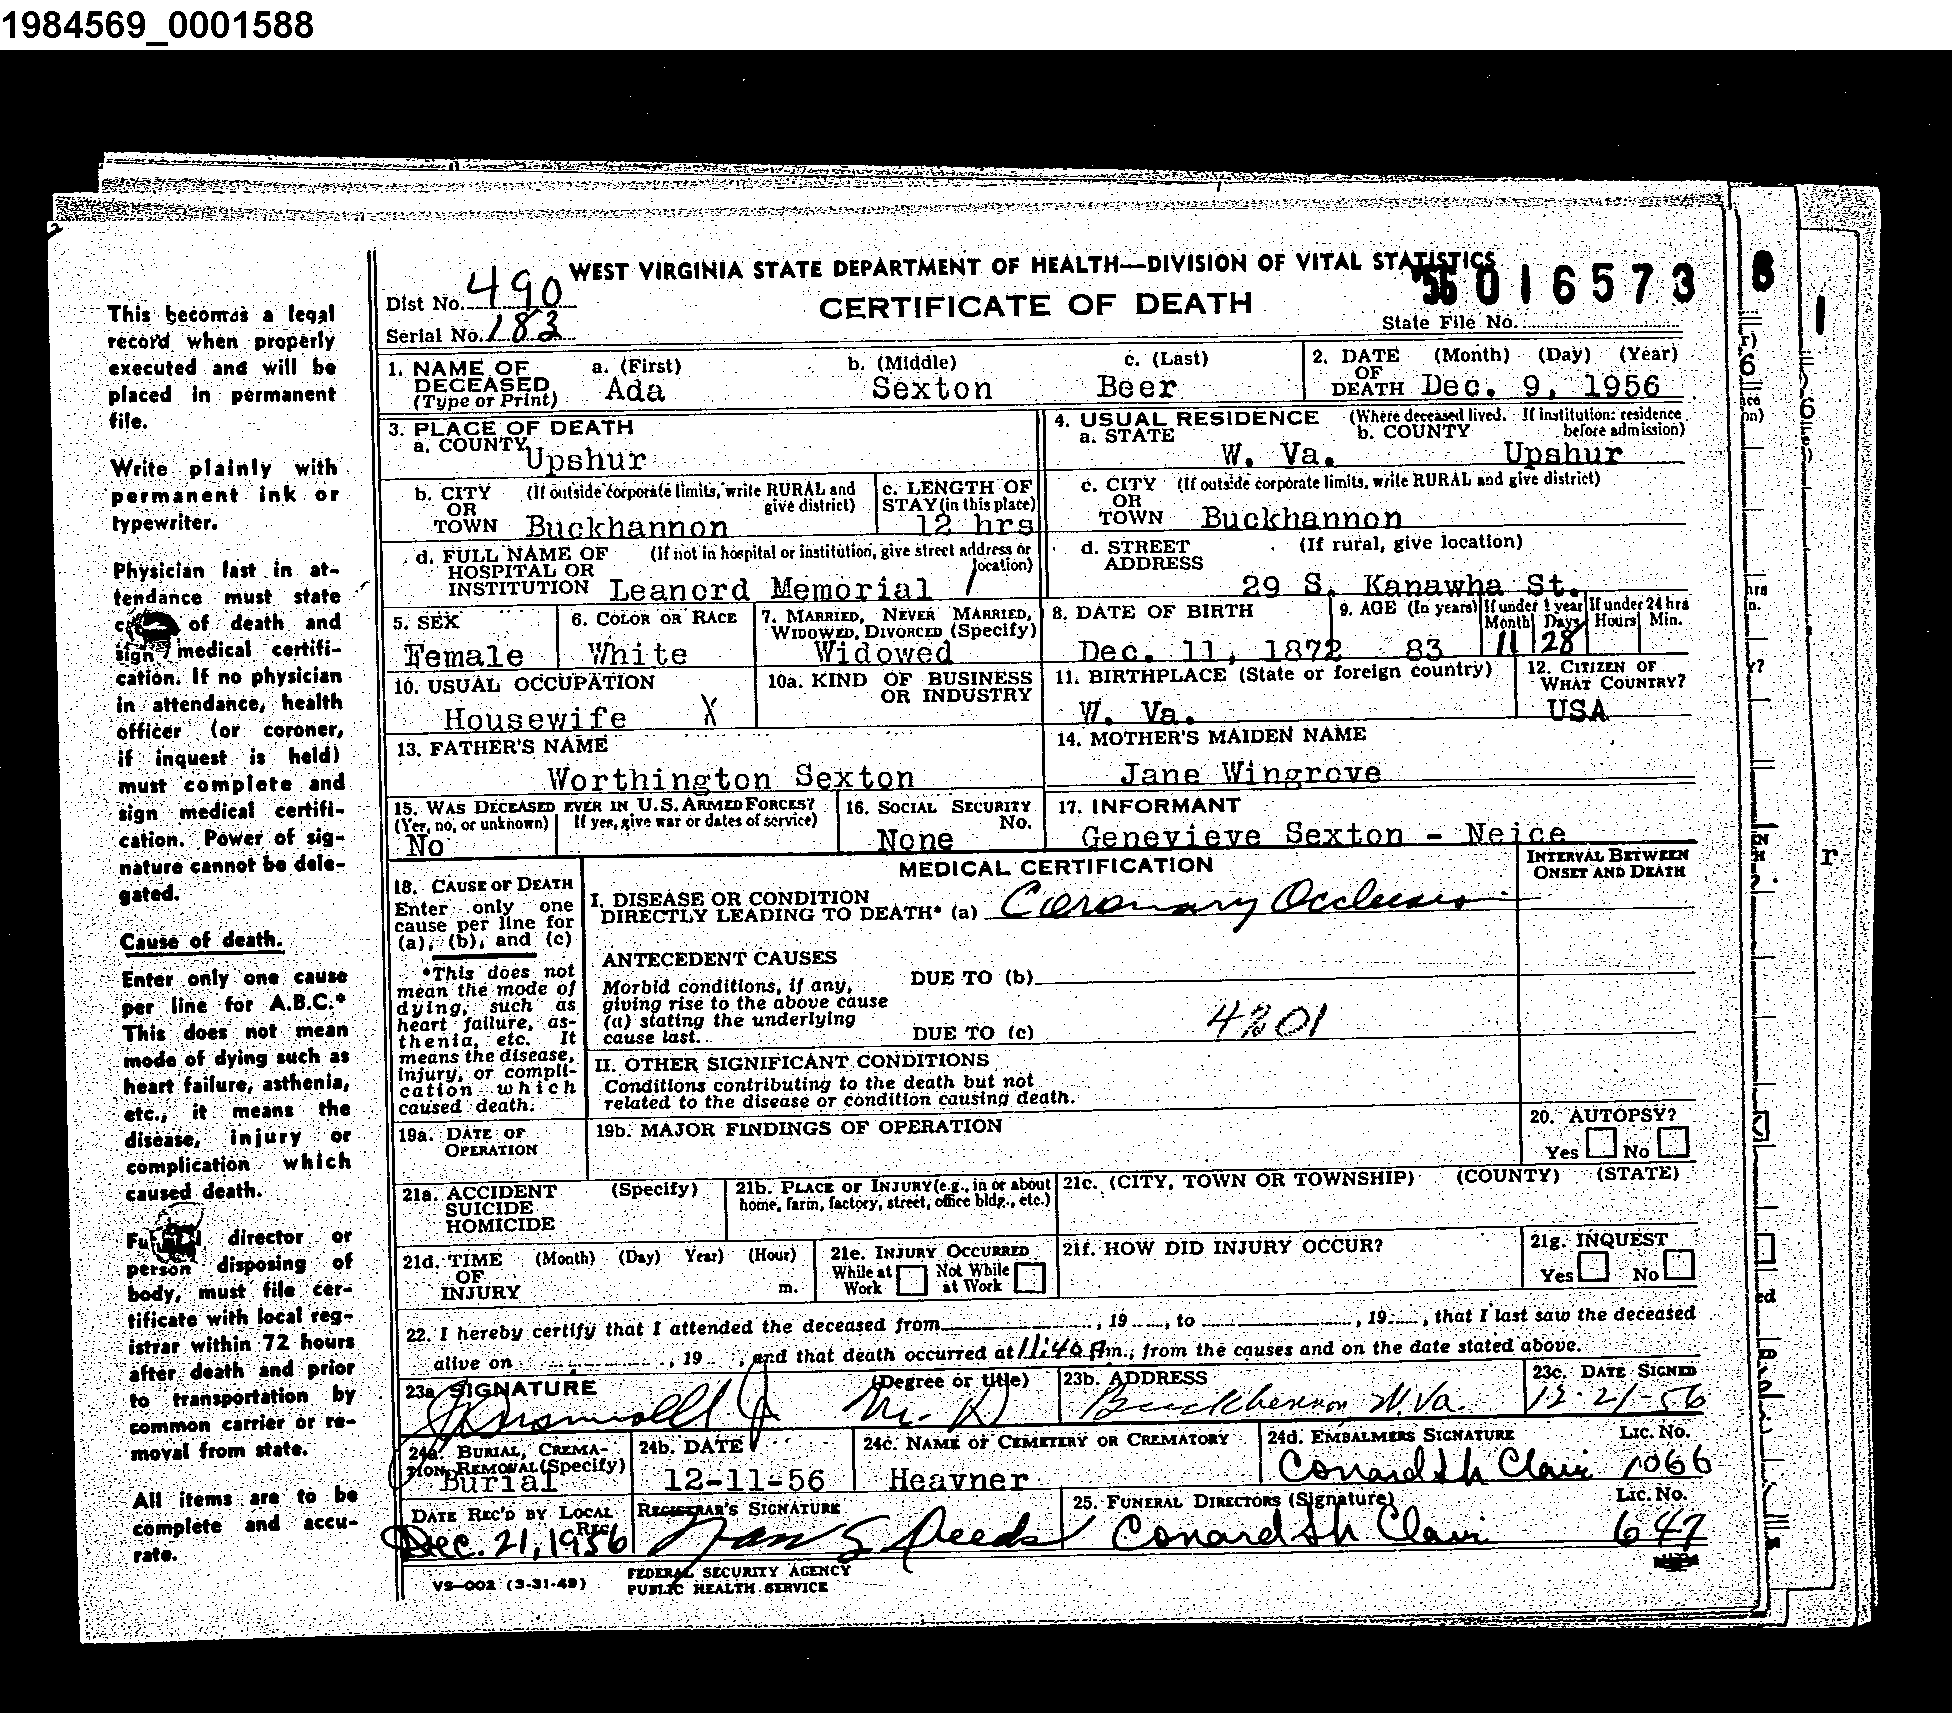 1984569_0001588
WEST VIRGINIA STATE DEPARTMENT OF HEALTH—DIVISION OF VITAL STATISTICS
Dist No. 490
CERTIFICATE OF DEATH
56 016573
Serial No. 183
State File No.
1. NAME OF DECEASED (Type or Print)
a. (First) Ada
b. (Middle) Sexton
c. (Last) Beer
2. DATE OF DEATH (Month) (Day) (Year) Dec. 9, 1956
3. PLACE OF DEATH
a. COUNTY Upshur
4. USUAL RESIDENCE (Where deceased lived. If institution: residence before admission)
a. STATE W. Va.
b. COUNTY Upshur
b. CITY OR TOWN (If outside corporate limits, write RURAL and give district) Buckhannon
c. LENGTH OF STAY (in this place) 12 hrs
c. CITY OR TOWN (If outside corporate limits, write RURAL and give district) Buckhannon
d. FULL NAME OF HOSPITAL OR INSTITUTION (If not in hospital or institution, give street address or location) Leanord Memorial /
d. STREET ADDRESS (If rural, give location) 29 S. Kanawha St.
5. SEX Female
6. COLOR OR RACE White
7. MARRIED, NEVER MARRIED, WIDOWED, DIVORCED (Specify) Widowed
8. DATE OF BIRTH Dec. 11, 1872
9. AGE (In years) 83
If under 1 year Month 11 Days 28
If under 24 hrs Hours Min.
10. USUAL OCCUPATION Housewife X
10a. KIND OF BUSINESS OR INDUSTRY
11. BIRTHPLACE (State or foreign country) W. Va.
12. CITIZEN OF WHAT COUNTRY? USA
13. FATHER'S NAME Worthington Sexton
14. MOTHER'S MAIDEN NAME Jane Wingrove
15. WAS DECEASED EVER IN U.S. ARMED FORCES?
(Yes, no, or unknown) No
If yes, give war or dates of service)
16. SOCIAL SECURITY No. None
17. INFORMANT Genevieve Sexton - Neice
MEDICAL CERTIFICATION
INTERVAL BETWEEN ONSET AND DEATH
18. CAUSE OF DEATH
Enter only one
cause per line for
(a), (b), and (c)
*This does not
mean the mode of
dying, such as
heart failure, as-
thenia, etc. It
means the disease,
injury, or compli-
cation which
caused death.
I. DISEASE OR CONDITION
DIRECTLY LEADING TO DEATH* (a) Coronary Occlusion
ANTECEDENT CAUSES
Morbid conditions, if any,
giving rise to the above cause
(a) stating the underlying
cause last.
DUE TO (b)
DUE TO (c) 4201
II. OTHER SIGNIFICANT CONDITIONS
Conditions contributing to the death but not
related to the disease or condition causing death.
19a. DATE OF OPERATION
19b. MAJOR FINDINGS OF OPERATION
20. AUTOPSY?
Yes No
21a. ACCIDENT SUICIDE HOMICIDE (Specify)
21b. PLACE OF INJURY (e.g., in or about home, farm, factory, street, office bldg., etc.)
21c. (CITY, TOWN OR TOWNSHIP) (COUNTY) (STATE)
21d. TIME OF INJURY (Month) (Day) Year) (Hour) m.
21e. INJURY OCCURRED
While at Work Not While at Work
21f. HOW DID INJURY OCCUR?
21g. INQUEST
Yes No
22. I hereby certify that I attended the deceased from , 19 , to , 19 , that I last saw the deceased
alive on , 19 , and that death occurred at 11:40 A m., from the causes and on the date stated above.
23a. SIGNATURE (Degree or title) M. D
23b. ADDRESS Buckhannon W. Va.
23c. DATE SIGNED 12-21-56
24a. BURIAL, CREMATION, REMOVAL (Specify) Burial
24b. DATE 12-11-56
24c. NAME OF CEMETERY OR CREMATORY Heavner
24d. EMBALMERS SIGNATURE Lic. No. 1066
DATE REC'D BY LOCAL REG. Dec. 21, 1956
REGISTRAR'S SIGNATURE
25. FUNERAL DIRECTORS (Signature) Lic. No. 647
VS—002 (3-31-49)
FEDERAL SECURITY AGENCY
PUBLIC HEALTH SERVICE
This becomes a legal
record when properly
executed and will be
placed in permanent
file.
Write plainly with
permanent ink or
typewriter.
Physician last in at-
tendance must state
of death and
sign medical certifi-
cation. If no physician
in attendance, health
officer (or coroner,
if inquest is held)
must complete and
sign medical certifi-
cation. Power of sig-
nature cannot be dele-
gated.
Cause of death.
Enter only one cause
per line for A.B.C.*
This does not mean
mode of dying such as
heart failure, asthenia,
etc., it means the
disease, injury or
complication which
caused death.
director or
person disposing of
body, must file cer-
tificate with local reg-
istrar within 72 hours
after death and prior
to transportation by
common carrier or re-
moval from state.
All items are to be
complete and accu-
rate.